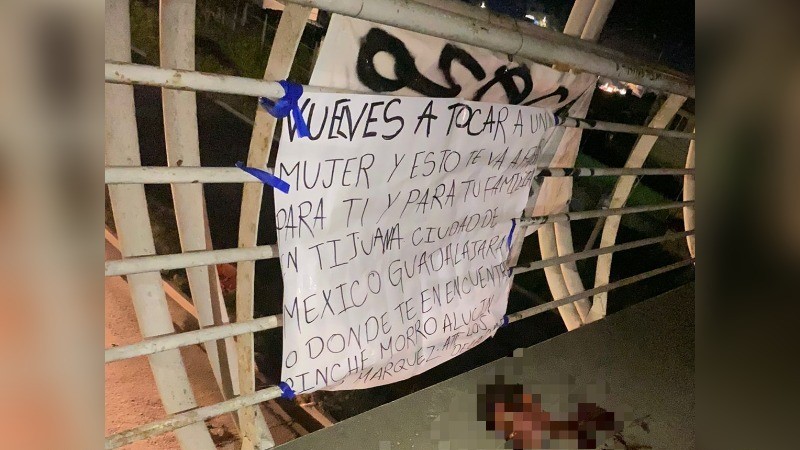 VUELVES A TOCAR A UN
MUJER Y ESTO TE VA A
PARA TI Y PARA TU FAMILIA
EN TIJUANA CIUDAD DE
MEXICO GUADALAJARA
O DONDE TE EN ENCUENTR
PINCHE MORRO ALUCIN
MARQUEZ. ATT. LOS
DE LA